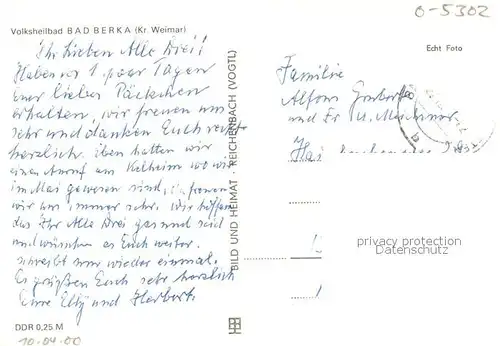 O-5302
Volksheilbad BAD BERKA (Kr. Weimar)
Ihr Lieben Alle Drei!
Haben vor 1. paar Tagen
Euer liebes Päckchen
erhalten, wir freuen uns
sehr und danken Euch recht
herzlich. Eben hatten wir
einen Anruf aus Kelheim wo wir
im Mai gewesen sind, da freuen
wir uns immer sehr. Wir hoffen
das Ihr Alle Drei gesund seid
und wünschen es Euch weiter.
schreibt mir wieder einmal.
Es grüßen Euch sehr herzlich
Eure Elly und Herbert.
DDR 0,25 M
10.04.00
BILD UND HEIMAT · REICHENBACH (VOGTL)
Echt Foto
Familie
Alfons
und Fr. U.
privacy protection
Datenschutz